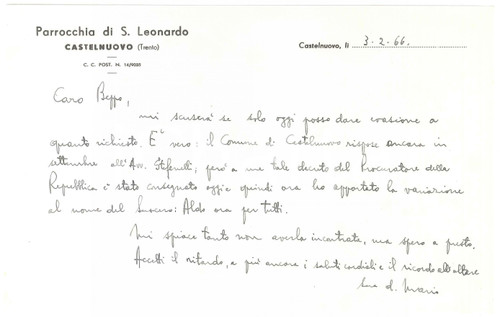 Parrocchia di S. Leonardo
CASTELNUOVO (Trento)
C. C. POST. N. 14/9085
Castelnuovo, li 3.2.66.
Caro Beppo,
mi scuserà se solo oggi posso dare evasione a
quanto richiesto. È vero: il Comune di Castelnuovo rispose ancora in
settembre all'Avv. Stefenelli, però a me tale decreto del Procuratore della
Repubblica è stato consegnato oggi e quindi ora ho apportato la variazione
al nome del suocero: Aldo ora per tutti.
Mi spiace tanto non averla incontrata, ma spero a presto.
Accetti il ritardo, e più ancora i saluti cordiali e il ricordo all'altare
suo d. Mario